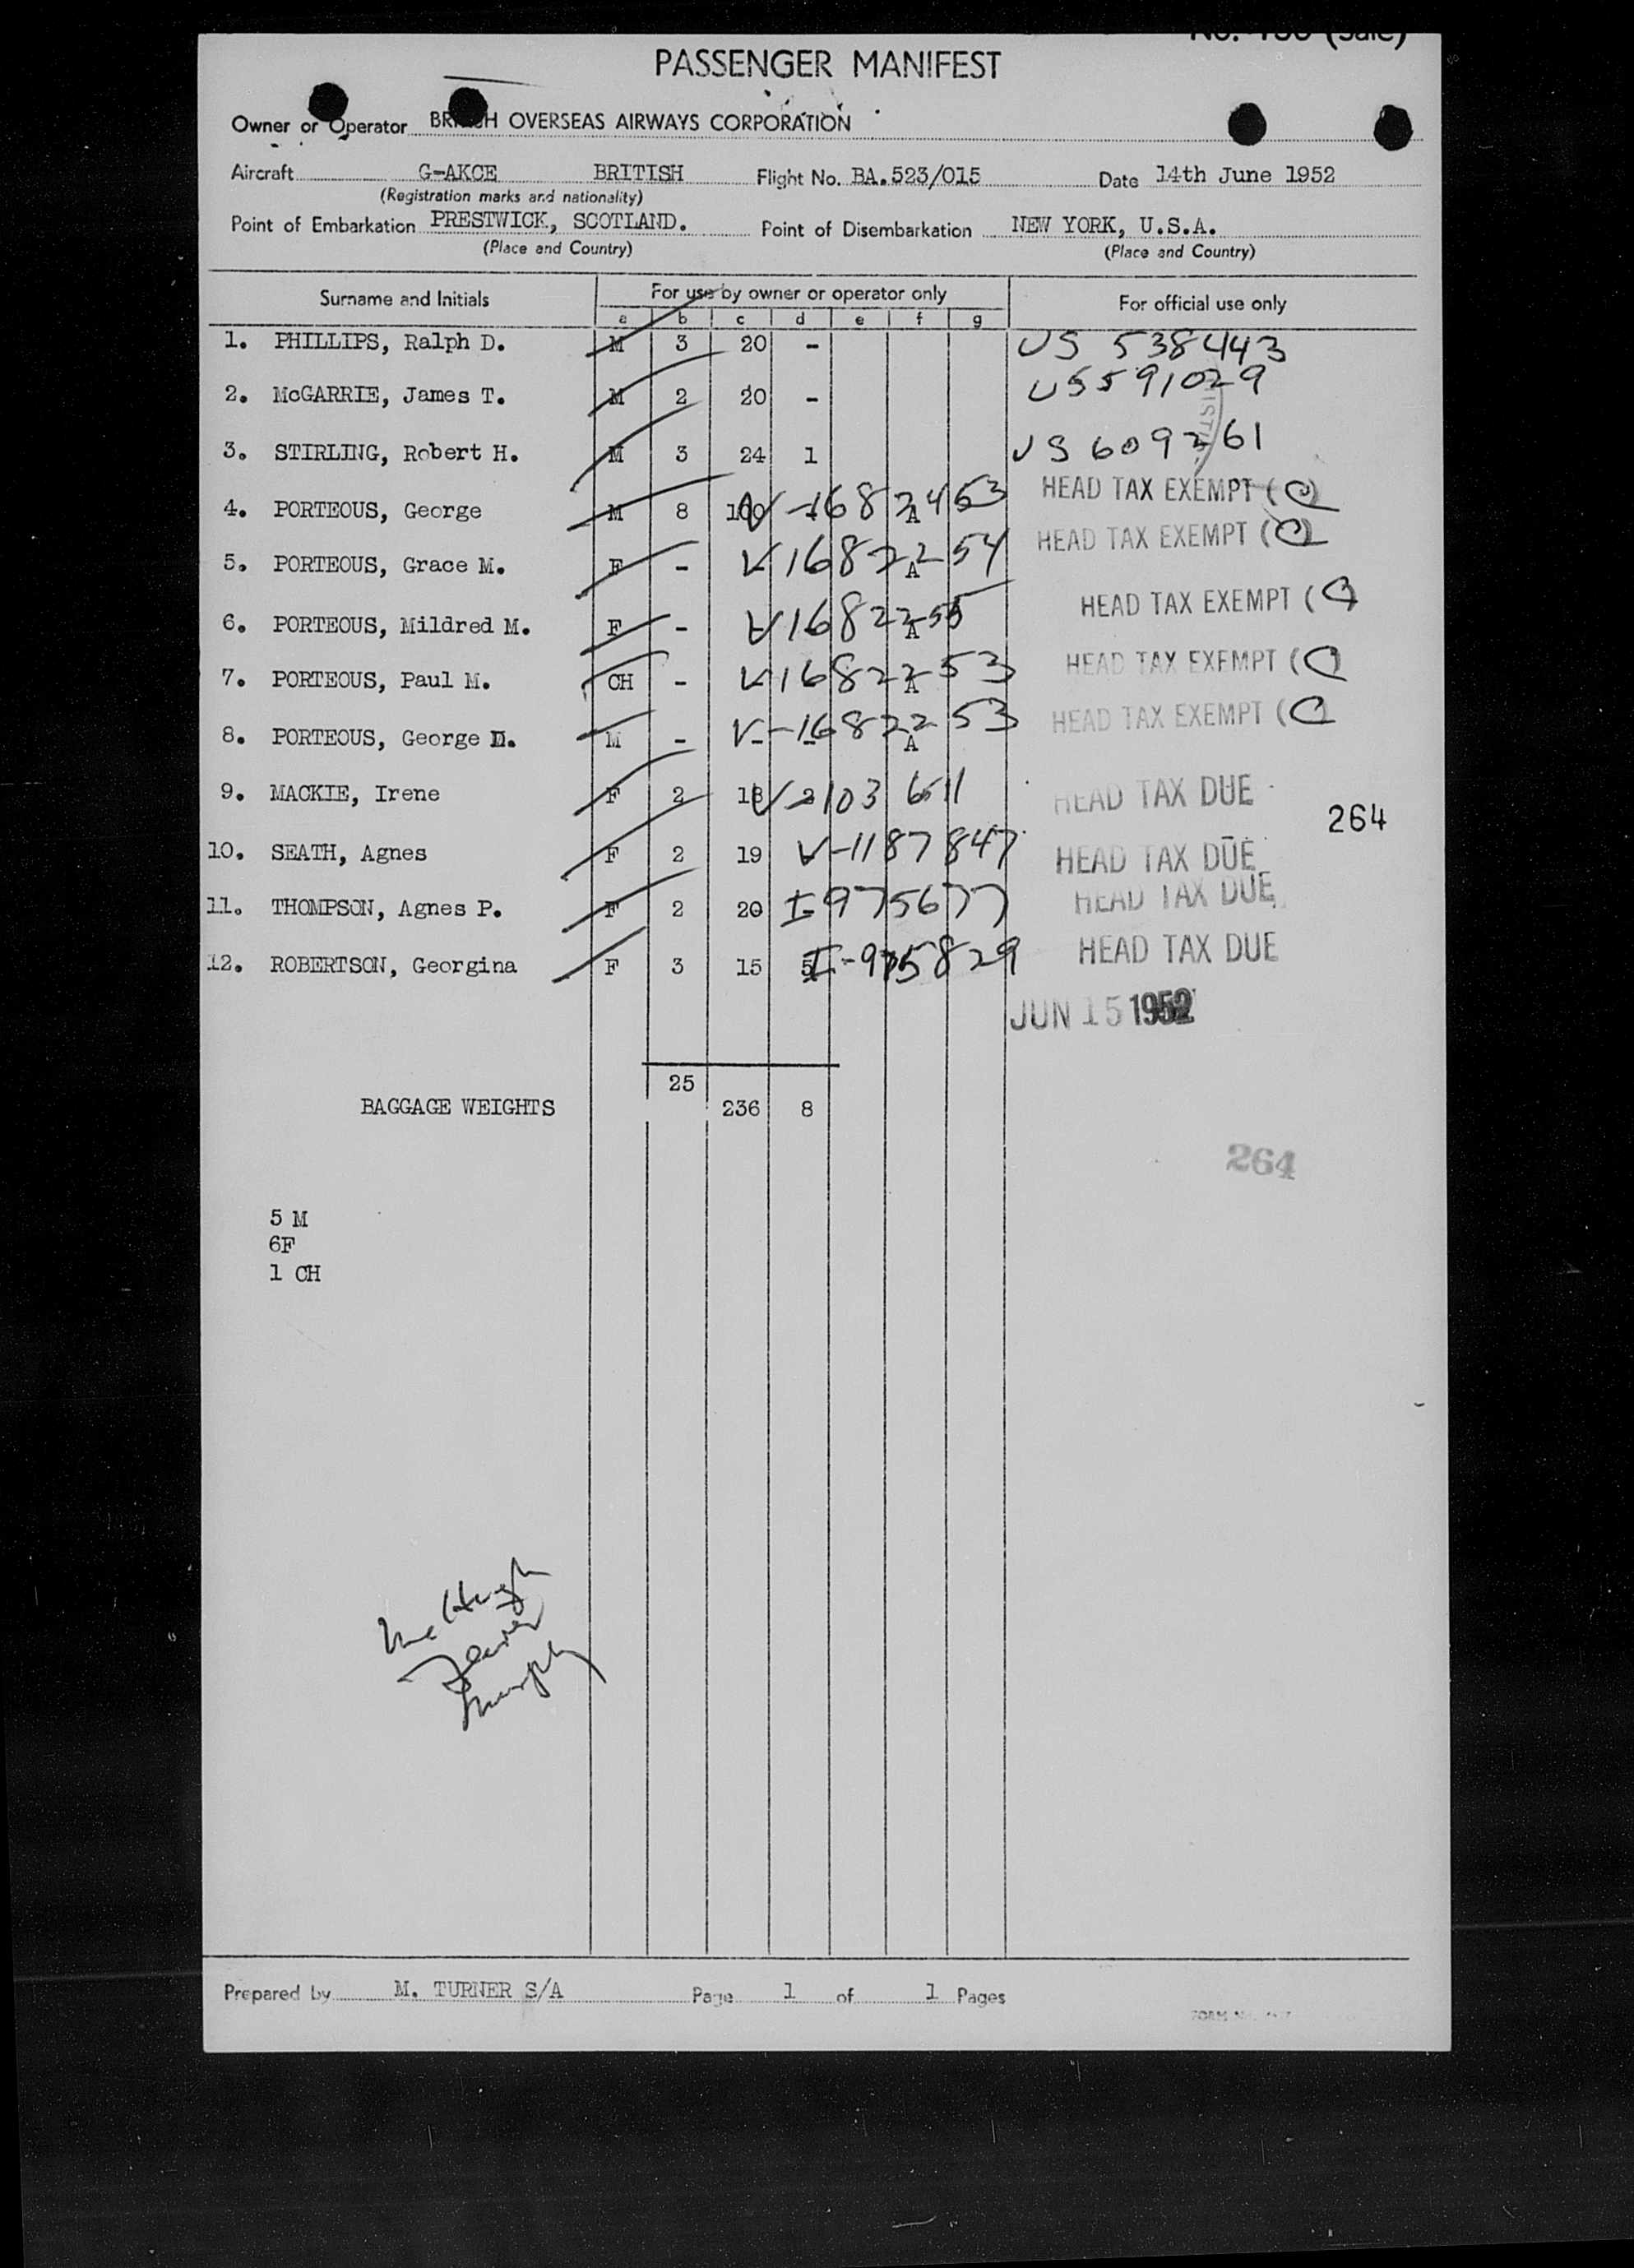 No. 106 (Sale)
PASSENGER MANIFEST
Owner or Operator BRITISH OVERSEAS AIRWAYS CORPORATION
Aircraft G-AKCE BRITISH Flight No. BA.523/015 Date 14th June 1952
(Registration marks and nationality)
Point of Embarkation PRESTWICK, SCOTLAND. Point of Disembarkation NEW YORK, U.S.A.
(Place and Country) (Place and Country)
Surname and Initials For use by owner or operator only For official use only
a b c d e f g
1. PHILLIPS, Ralph D. M 3 20 - US 538443
2. McGARRIE, James T. M 2 20 - US591029
3. STIRLING, Robert H. M 3 24 1 US 609261
4. PORTEOUS, George M 8 100 A HEAD TAX EXEMPT (C)
5. PORTEOUS, Grace M. F - V1682254 A HEAD TAX EXEMPT (C)
6. PORTEOUS, Mildred M. F - V1682255 A HEAD TAX EXEMPT (C
7. PORTEOUS, Paul M. CH - V1682253 A HEAD TAX EXEMPT (C
8. PORTEOUS, George D. M - - - V-1682253 A HEAD TAX EXEMPT (C
9. MACKIE, Irene F 2 18 2 V-103 6511 HEAD TAX DUE
264
10. SEATH, Agnes F 2 19 V-1187847 HEAD TAX DUE
11. THOMPSON, Agnes P. F 2 20 I-975677 HEAD TAX DUE
12. ROBERTSON, Georgina F 3 15 5 I-975829 HEAD TAX DUE
JUN 15 1952
25
BAGGAGE WEIGHTS 236 8
264
5 M
6F
1 CH
McHugh
Murphy
Prepared by M. TURNER S/A Page 1 of 1 Pages